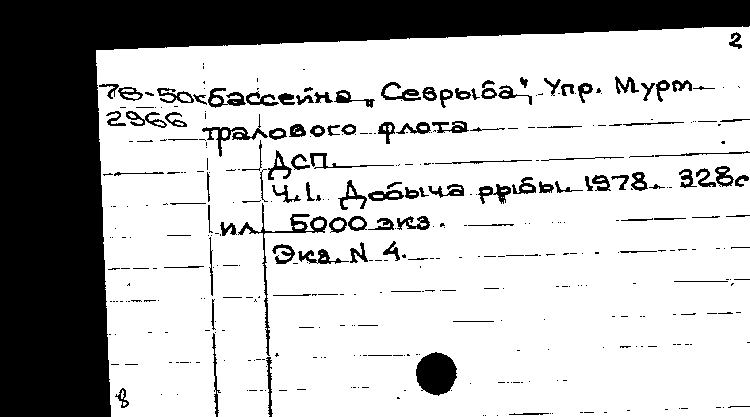 2
78-50к бассейна „Севрыба", Упр. Мурм.
2966 тралового флота.
ДСП.
Ч.1. Добыча рыбы. 1978. 328с
ил 5000 экз.
Экз. N 4.
8